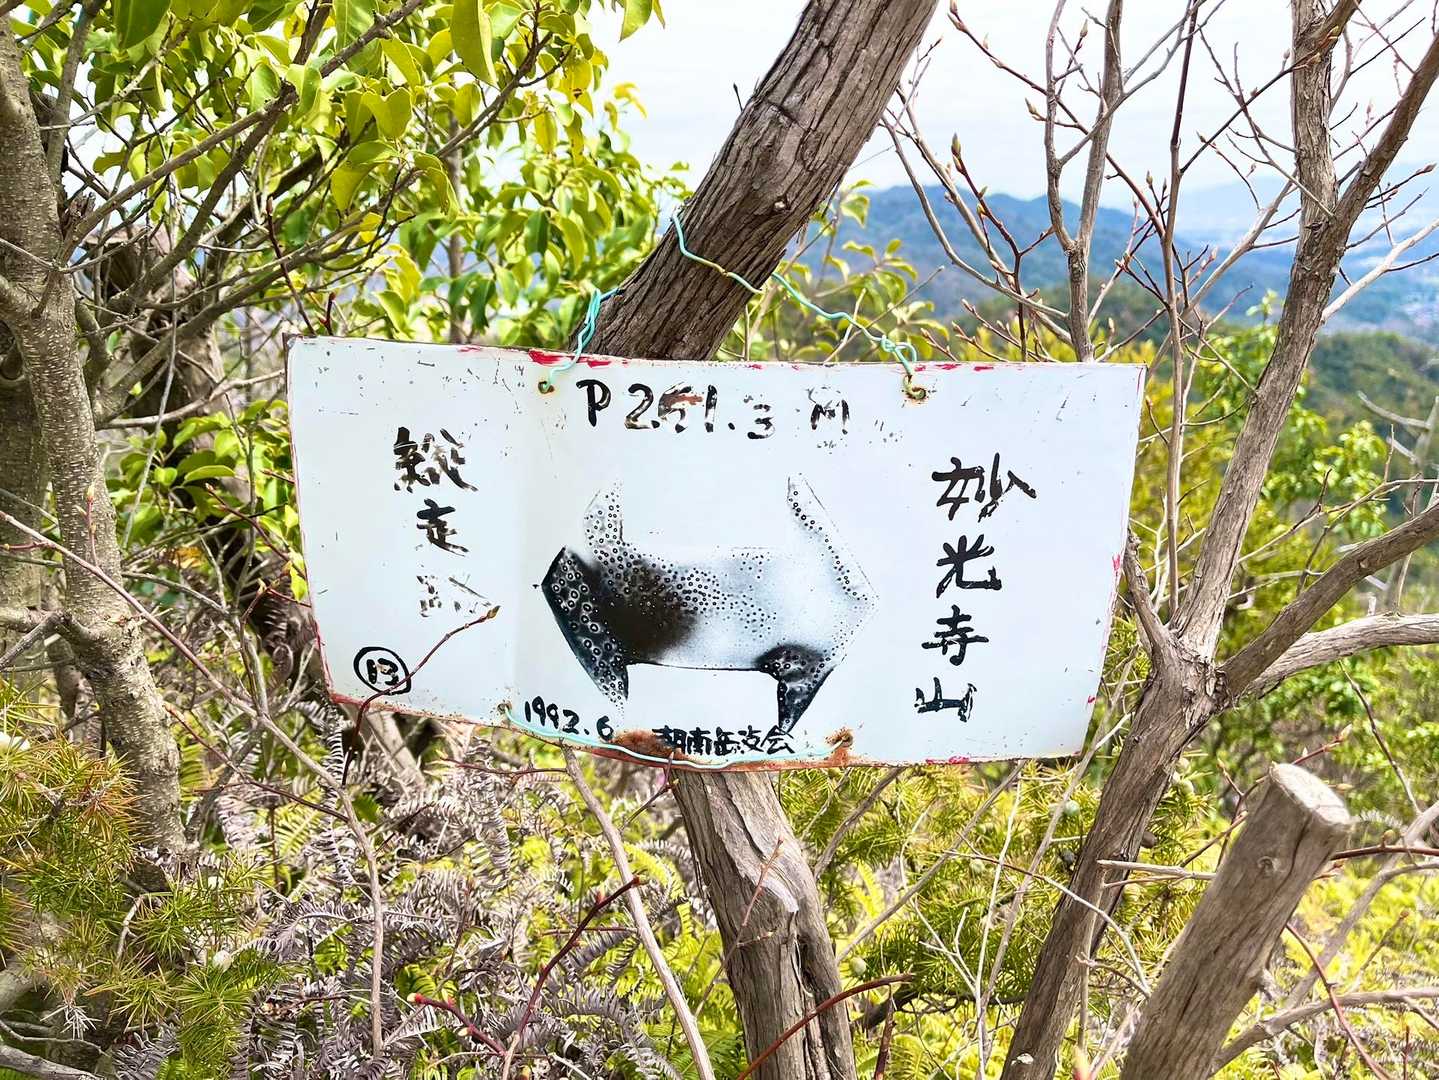 P 261.3 M
妙光寺山
総走路
⑬
1992.6
湖南岳友会